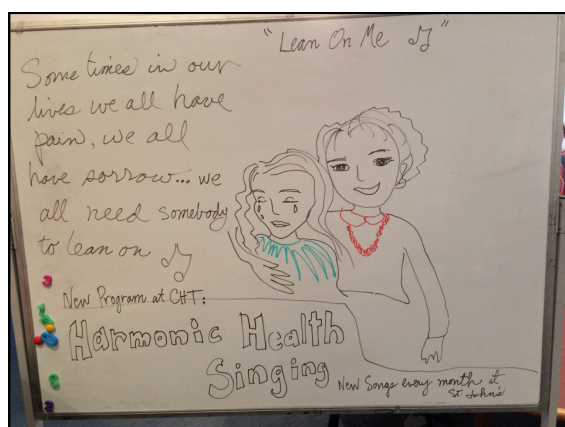 "Lean On Me ♫"
Some times in our
lives we all have
pain, we all
have sorrow... we
all need somebody
to lean on ♫
New Program at CHT:
Harmonic Health
Singing
New Songs every month at
St. John's